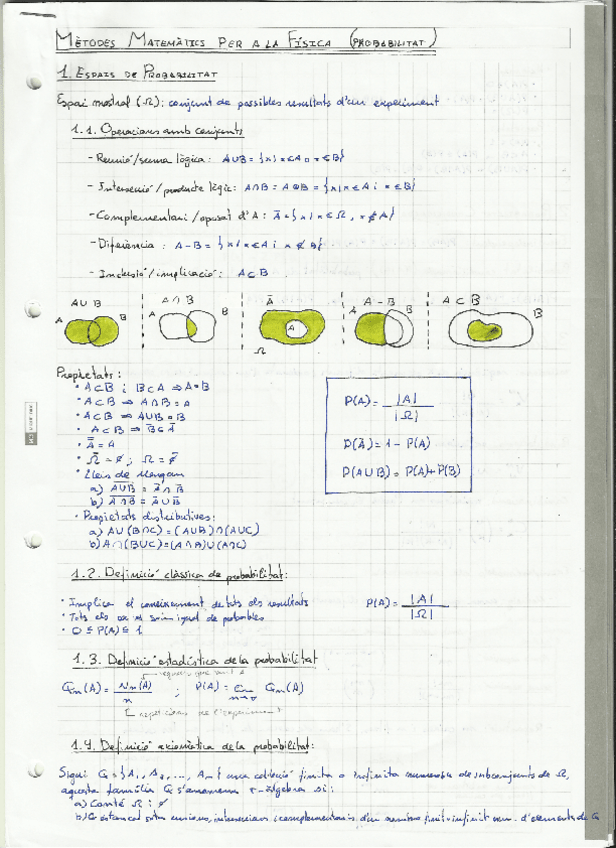 MÈTODES MATEMÀTICS PER A LA FÍSICA (PROBABILITAT)
1. ESPAIS DE PROBABILITAT
Espai mostral (Ω): conjunt de possibles resultats d'un experiment
1.1. Operacions amb conjunts
- Reunió/suma lògica: A∪B = {x|x∈A o x∈B}
- Intersecció/producte lògic: A∩B = A⊗B = {x|x∈A i x∈B}
- Complementari/oposat d'A: Ā = {x|x∈Ω, x∉A}
- Diferència: A-B = {x|x∈A i x∉B}
- Inclusió/implicació: A⊂B
A∪B A∩B Ā A-B A⊂B
A B A B A Ω A B B
Propietats:
• A⊂B i B⊂A ⇒ A=B
• A⊂B ⇒ A∩B = A
• A⊂B ⇒ A∪B = B
• A⊂B ⇒ B̄⊂Ā
• A̿ = A
• Ω̄ = ∅; Ω = ∅̄
• Lleis de Morgan
a) A̅∪̅B̅ = Ā∩B̄
b) A̅∩̅B̅ = Ā∪B̄
• Propietats distributives:
a) A∪(B∩C) = (A∪B)∩(A∪C)
b) A∩(B∪C) = (A∩B)∪(A∩C)
P(A) = |A| / |Ω|
P(Ā) = 1 - P(A)
P(A∪B) = P(A)+P(B)
1.2. Definició clàssica de probabilitat:
• Implica el coneixement de tots els resultats
• Tots els són igual de probables
• 0 ≤ P(A) ≤ 1
P(A) = |A| / |Ω|
1.3. Definició estadística de la probabilitat
Gn(A) = Nn(A) / n ; P(A) = lim n→∞ Gn(A)
repeticions de l'experiment
1.4. Definició axiomàtica de la probabilitat:
Sigui G = {A₁, A₂, ..., An} una col·lecció finita o infinita numerable de subconjunts de Ω,
aquesta família G s'anomena σ-àlgebra si:
a) Conté Ω i ∅
b) G estancada sota unions, interseccions i complementaris d'un nombre finit o infinit num. d'elements de G